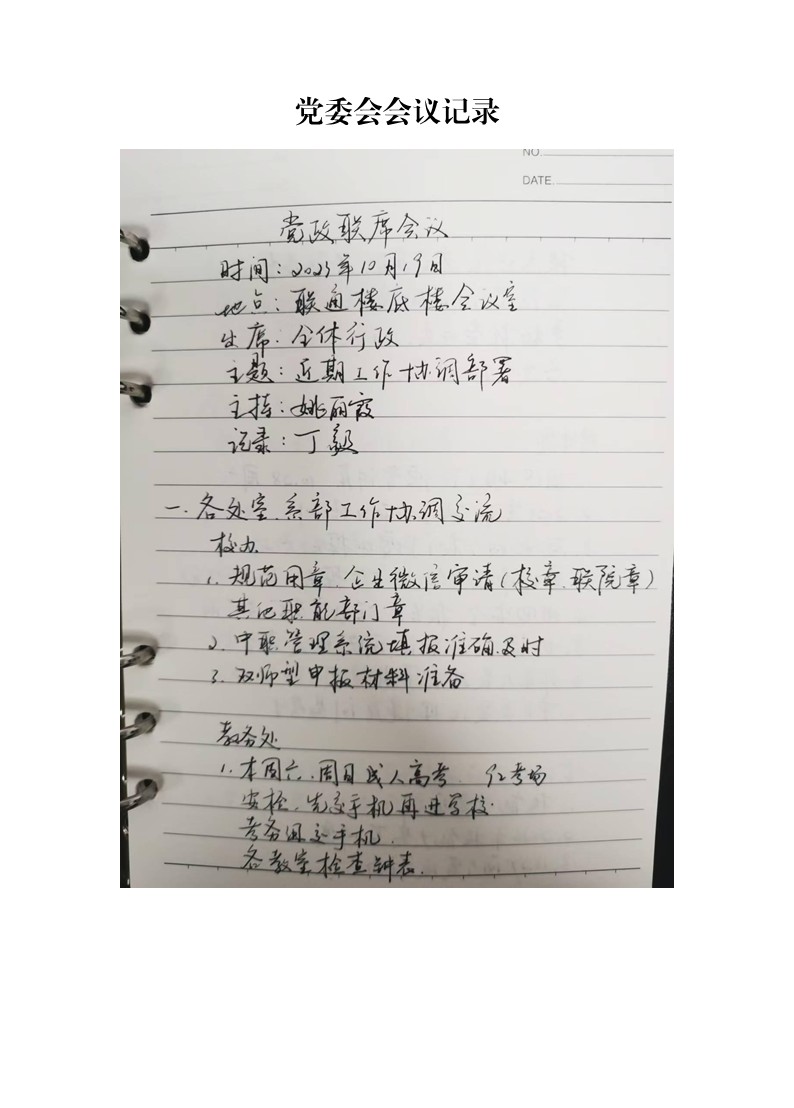 党委会会议记录
NO.
DATE.
党政联席会议
时间：2023年10月19日
地点：联通楼底楼会议室
出席：全体行政
主题：近期工作协调部署
主持：姚丽霞
记录：丁毅
一.各处室.系部工作协调交流
校办
1.规范用章.企生微信审请（校章.联院章）
其他职能部门章
2.中职管理系统填报准确.及时
3.双师型申报材料准备
教务处
1.本周六.周日成人高考. 考场
安检.先交手机再进学校
考务 交手机.
各教室检查钟表.